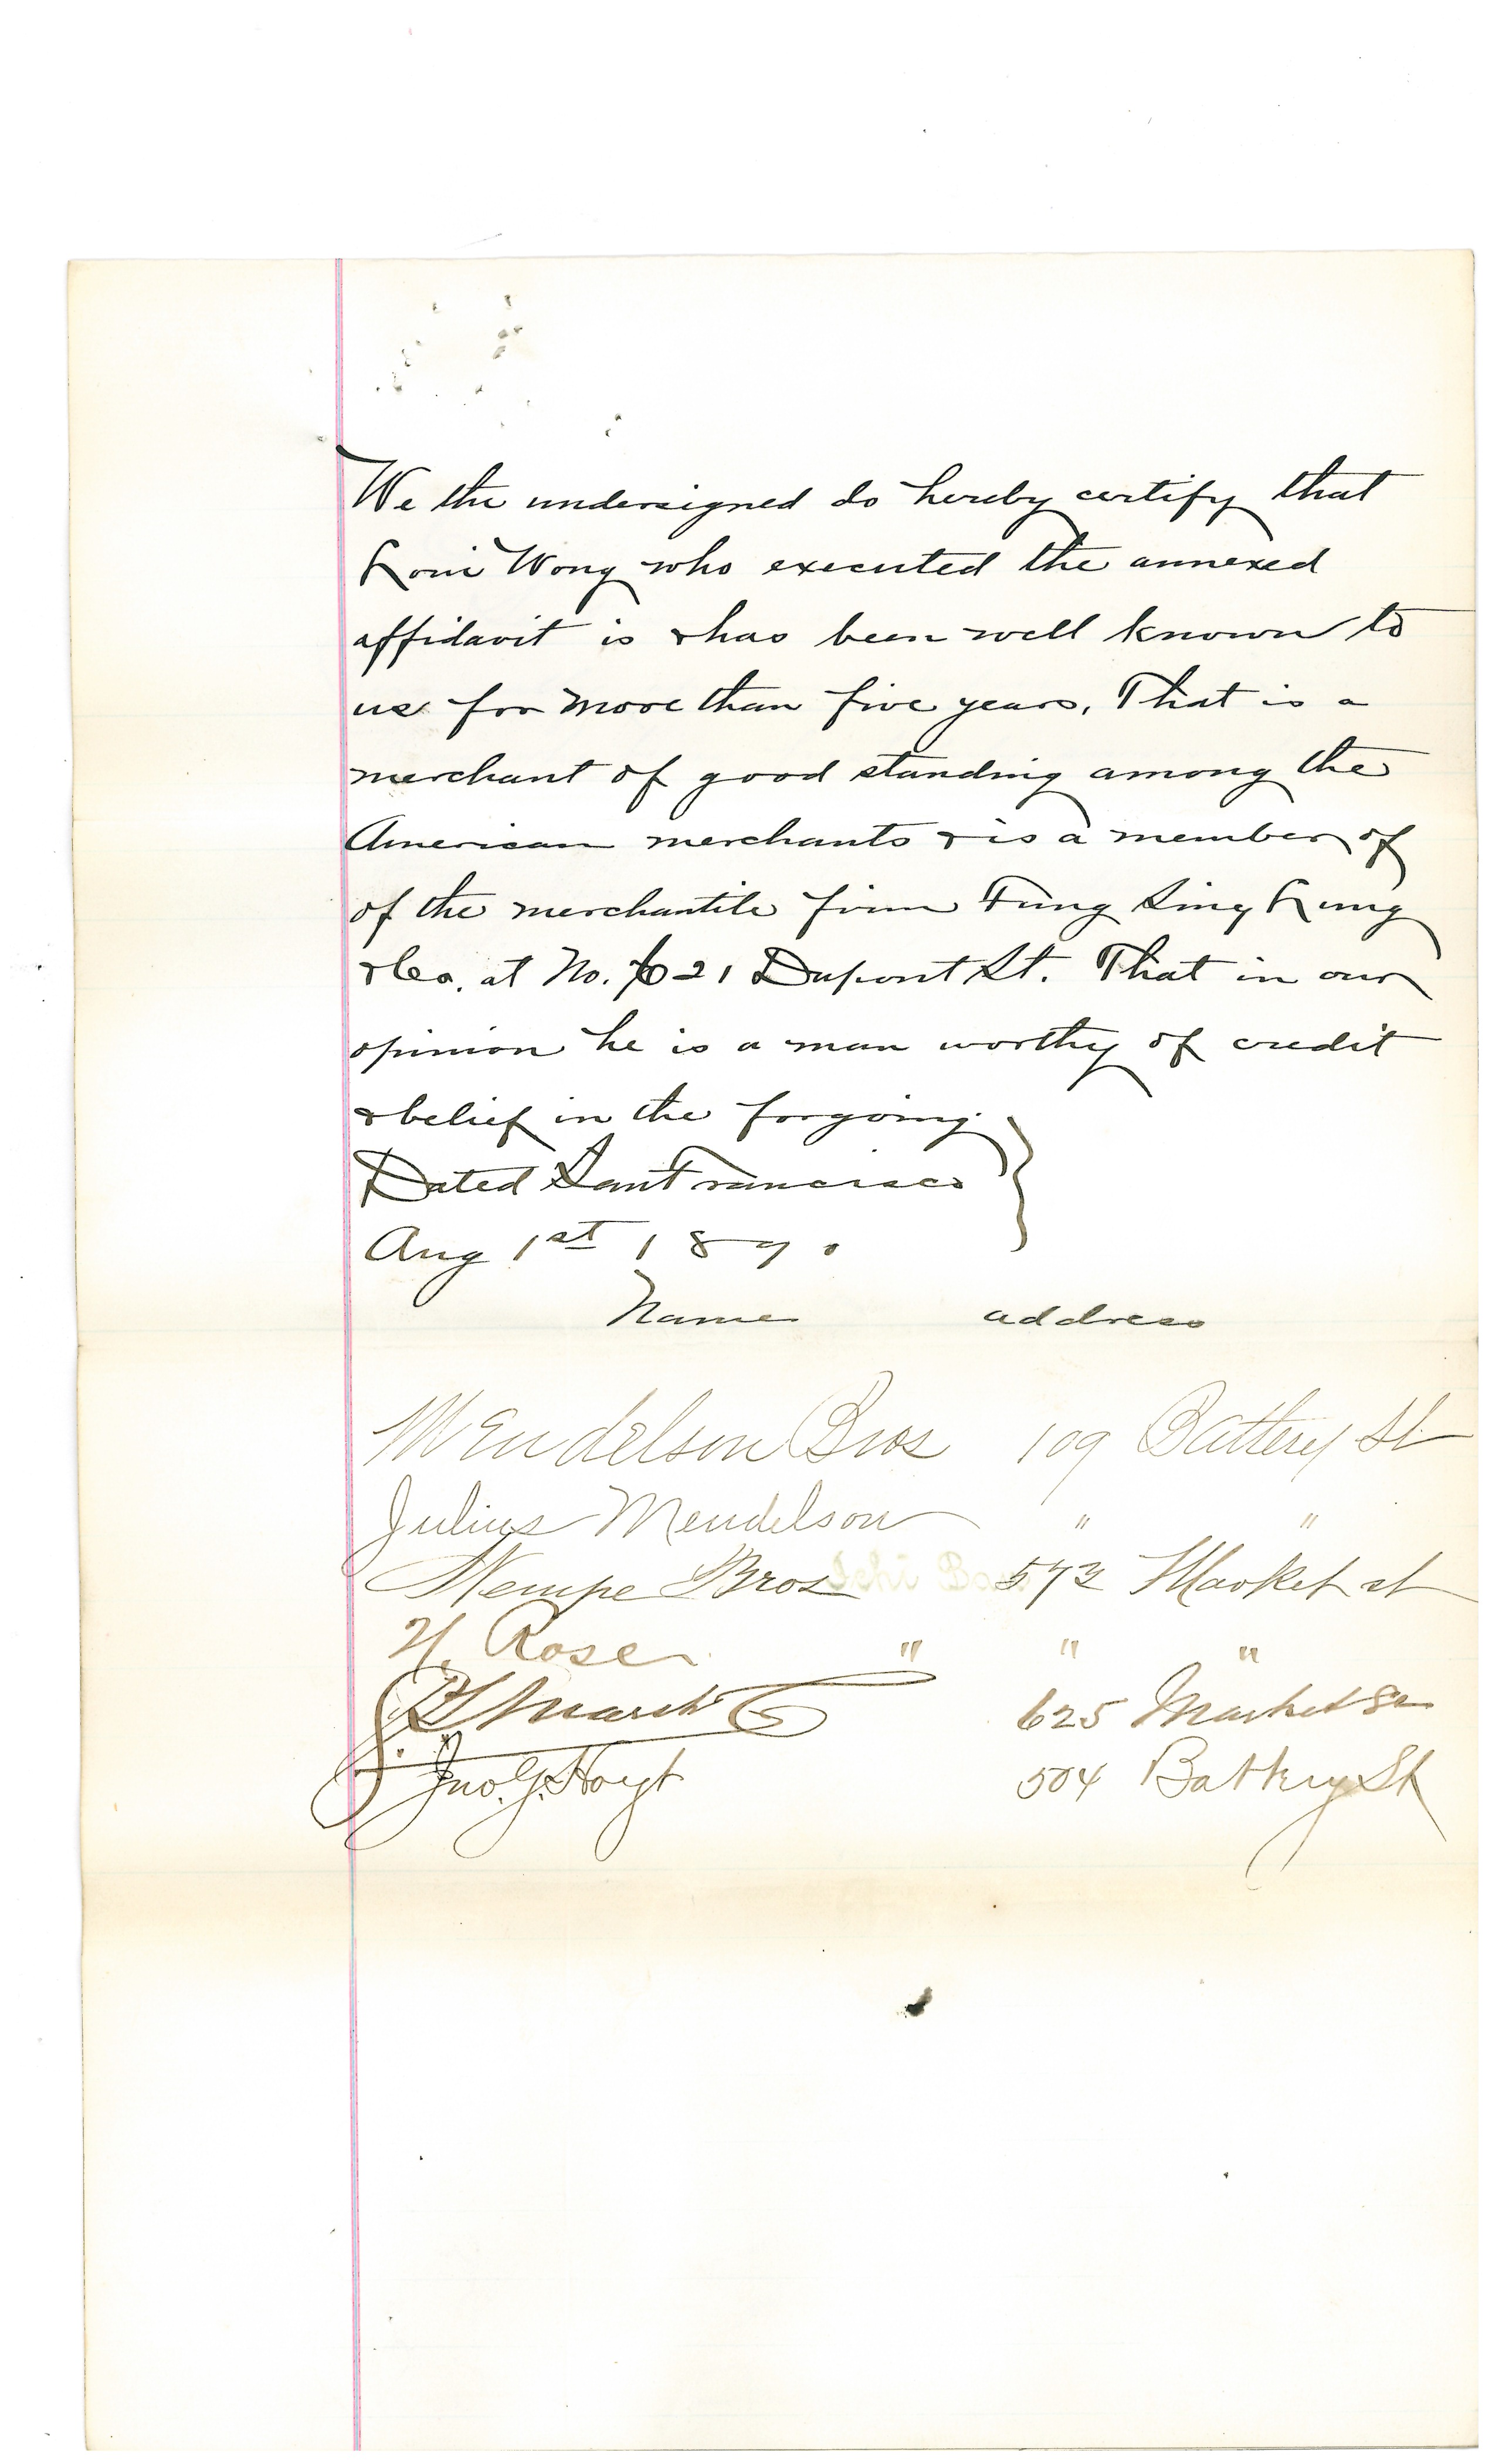 We the undersigned do hereby certify that
Wong who executed the annexed
affidavit is & has been well known to
us for more than five years. That is a
merchant of good standing among the
American merchants & is a member of
of the merchantile firm Fung Sing Kung
& Co. at No. 621 Dupont St. That in our
opinion he is a man worthy of credit
& belief in the forgoing
Dated San Francisco
Aug 1st 1890
Name address
Mendelson Bros 109 Battery St
Julius Mendelson " "
Hempe Bros 573 Market st
H. Rose " " "
Marsh 625 Market St
Jno. G. Hoyt 504 Battery St